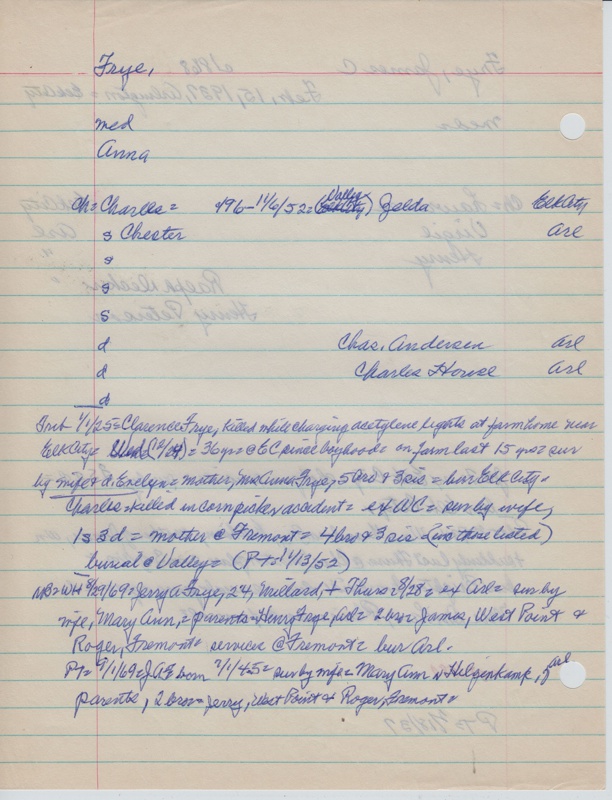 Frye,
med
Anna
Ch = Charles = d96 - 11/6/52 = (Elk City) Valley Zelda Elk City
s Chester Arl
s
s
s
d Chas. Andersen Arl
d Charles House Arl
d
Trib 1/1/25 = Clarence Frye, killed while charging acetylene lights at farm home near
Elk City = = 36 yrs @ EC since boyhood = on farm last 15 yrs = sur
by wife & d. Evelyn = mother, Mrs Anna Frye, 5 bro & 3 sis = bur Elk City =
Charles = killed in cornpicker accident = ex WC = sur by wife,
1s 3d = mother @ Fremont = 4 bro & 3 sis (not those listed)
burial @ Valley = (P-T = 11/13/52)
WH 8/29/69 = Jerry A Frye, 24, Millard, + Thurs 8/28 = ex Arl = sur by
wife, Mary Ann, = parents = Henry Frye, Arl = 2 bro = James, West Point &
Roger, Fremont = services @ Fremont = bur Arl.
PT = 9/1/69 = J A F born 7/1/45 = sur by wife = Mary Ann N Hilgenkamp, Arl
parents, 2 bro = Jerry, West Point & Roger, Fremont =